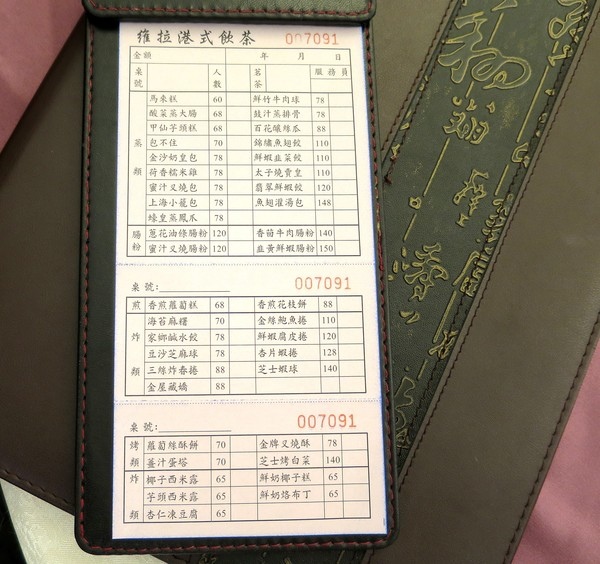 維拉港式飲茶 007091
金額 年 月 日
桌號 人數 茗茶 服務員
蒸類
馬來糕 60 鮮竹牛肉球 78
酸菜蒸大腸 68 鼓汁蒸排骨 78
甲仙芋頭糕 68 百花釀絲瓜 88
包不住 70 錦繡魚翅餃 110
金沙奶皇包 78 鮮蝦韭菜餃 110
荷香糯米雞 78 太子燒賣皇 110
蜜汁叉燒包 78 翡翠鮮蝦餃 120
上海小籠包 78 魚翅灌湯包 148
蠔皇蒸鳳爪 78
腸粉
蔥花油條腸粉 120 香茜牛肉腸粉 140
蜜汁叉燒腸粉 120 韭黃鮮蝦腸粉 150
桌號: 007091
煎 香煎蘿蔔糕 68 香煎花枝餅 88
炸類
海苔麻糬 70 金絲鮑魚捲 110
家鄉鹹水餃 78 鮮蝦腐皮捲 120
豆沙芝麻球 78 杏片蝦捲 128
三絲炸春捲 88 芝士蝦球 140
金屋藏嬌 88
桌號: 007091
烤類
蘿蔔絲酥餅 70 金牌叉燒酥 78
薑汁蛋塔 70 芝士烤白菜 140
炸類
椰子西米露 65 鮮奶椰子糕 65
芋頭西米露 65 鮮奶烙布丁 65
杏仁凍豆腐 65